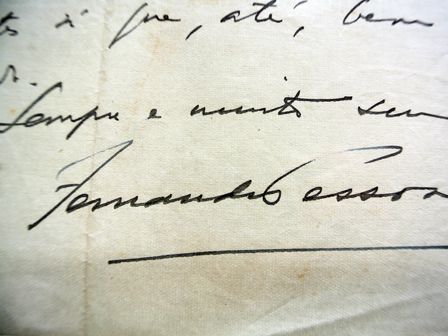 que, até, bem
Sempre e muito seu
Fernando Pessoa